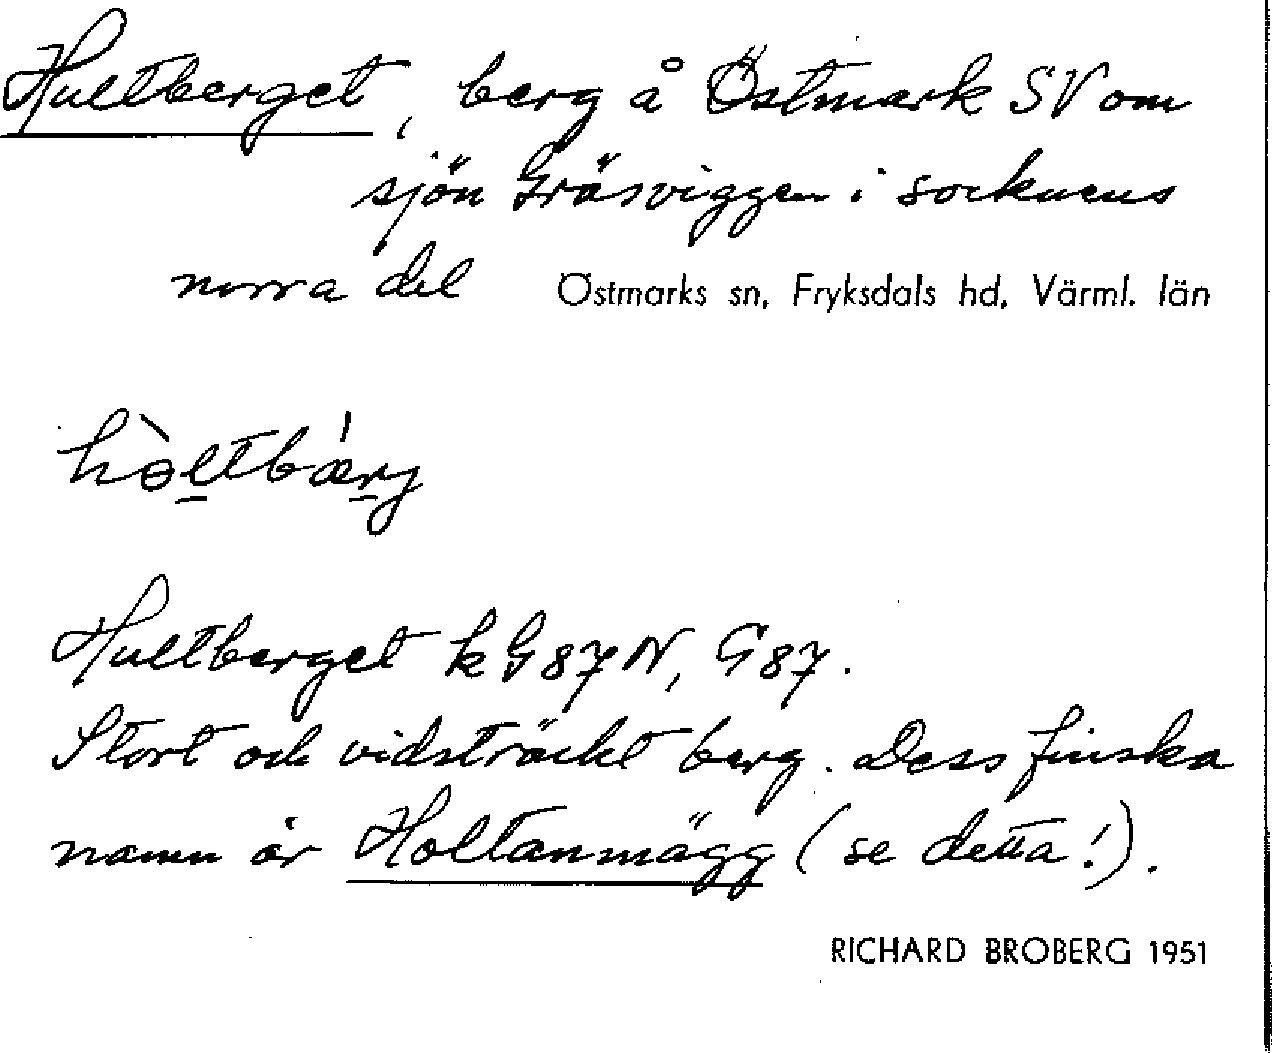 Hultberget, berg å Östmark SV om
sjön Gräsviggen i socknens
norra del Östmarks sn, Fryksdals hd, Värml. län
hɵ̀l̠tbǽr̠j
Hultberget k G87N, G87.
Stort och vidsträckt berg. Dess finska
namn är Holtanmägg (se detta!).
RICHARD BROBERG 1951